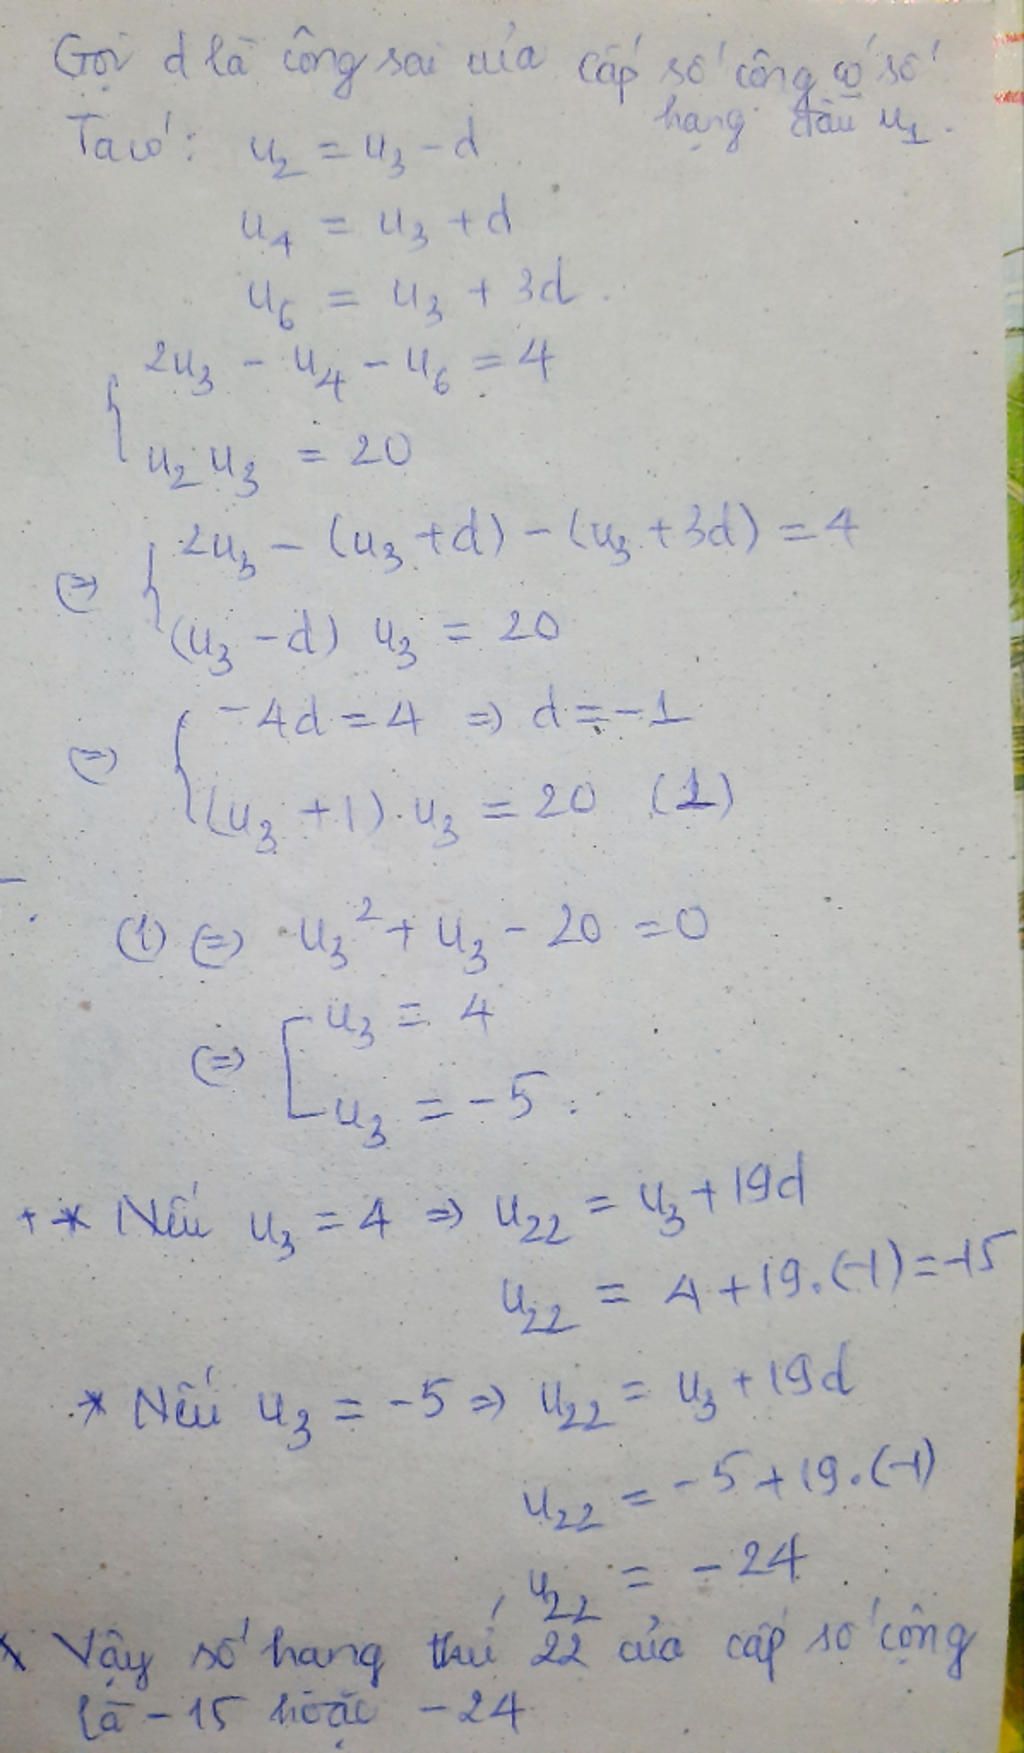 Gọi d là công sai của cấp số cộng có số
hạng đầu u₁.
Ta có: u₂ = u₃ - d
u₄ = u₃ + d
u₆ = u₃ + 3d.
{ 2u₃ - u₄ - u₆ = 4
u₂ u₃ = 20
(=) { 2u₃ - (u₃ + d) - (u₃ + 3d) = 4
(u₃ - d) u₃ = 20
(=) { -4d = 4 => d = -1
(u₃ + 1). u₃ = 20 (1)
(1) (=) u₃² + u₃ - 20 = 0
(=) [ u₃ = 4
u₃ = -5.
+ * Nếu u₃ = 4 => u₂₂ = u₃ + 19d
u₂₂ = 4 + 19.(-1) = -15
* Nếu u₃ = -5 => u₂₂ = u₃ + 19d
u₂₂ = -5 + 19.(-1)
u₂₂ = -24
* Vậy số hạng thứ 22 của cấp số cộng
là -15 hoặc -24